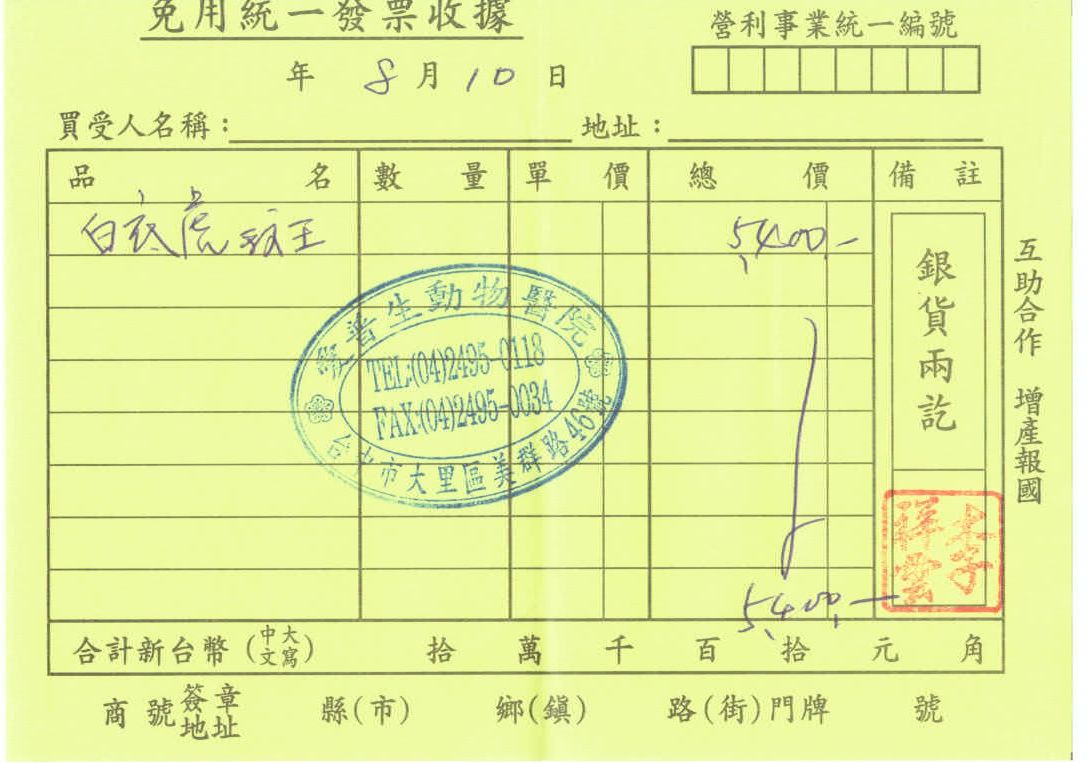 免用統一發票收據
營利事業統一編號
年 8 月 10 日
買受人名稱： 地址：
品名 數量 單價 總價 備註
白底虎紋王 5,400.-
銀貨兩訖
互助合作 增產報國
愛普生動物醫院
TEL:(04)2495-0118
FAX:(04)2495-0034
台中市大里區美群路46號
李祥雲
5,400.-
合計新台幣(中文大寫) 拾 萬 千 百 拾 元 角
商號簽章地址 縣(市) 鄉(鎮) 路(街)門牌 號